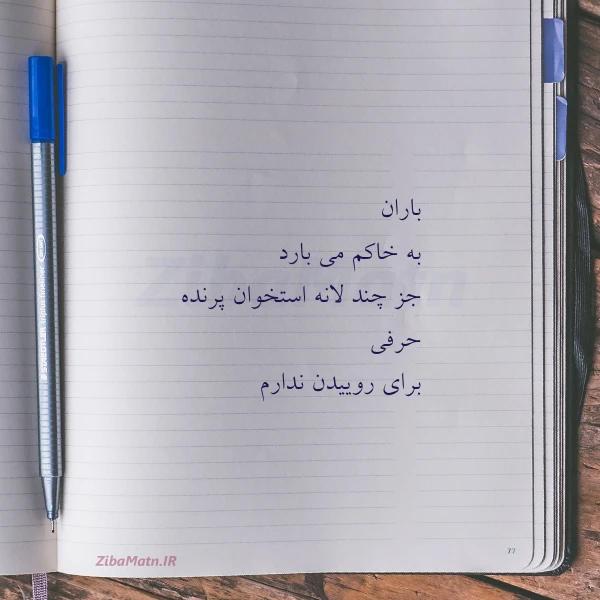 باران
به خاکم می بارد
جز چند لانه استخوان پرنده
حرفی
برای روییدن ندارم
ZibaMatn
ZibaMatn.IR